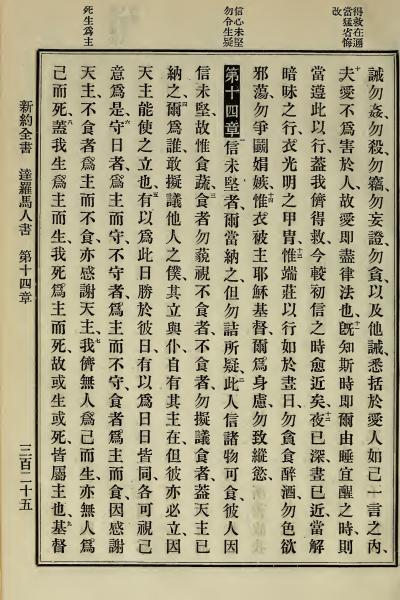 得救在邇
當猛省悔
改
信心未堅
勿令生疑
死生爲主
誡勿姦、勿殺、勿竊、勿妄證、勿貪、以及他誡、悉括於愛人如己一言之內、
十夫愛不爲害於人、故愛卽盡律法也、十一旣知斯時、卽爾由睡宜醒之時、則
當遵此以行、蓋我儕得救、今較初信之時愈近矣、十二夜已深、晝已近、當解
暗昧之行、衣光明之甲冑、十三惟端莊以行、如於晝日、勿貪食醉酒、勿色欲
邪蕩、勿爭鬭娼嫉、十四惟衣被主耶穌基督、爾爲身慮、勿致縱慾、
第十四章 一信未堅者、爾當納之、但勿詰所疑、二此人信諸物可食、彼人因
信未堅、故惟食蔬、三食者勿藐視不食者、不食者勿擬議食者、蓋天主已
納之、四爾爲誰、敢擬議他人之僕、其立與仆、自有其主在、但彼亦必立、因
天主能使之立也、五有以爲此日勝於彼日、有以爲日日皆同、各可視己
意爲是、六守日者、爲主而守、不守者、爲主而不守、食者、爲主而食、因感謝
天主、不食者、爲主而不食、亦感謝天主、七我儕無人爲己而生、亦無人爲
己而死、八蓋我生爲主而生、我死爲主而死、故或生或死、皆屬主也、九基督
新約全書 達羅馬人書 第十四章 三百二十五